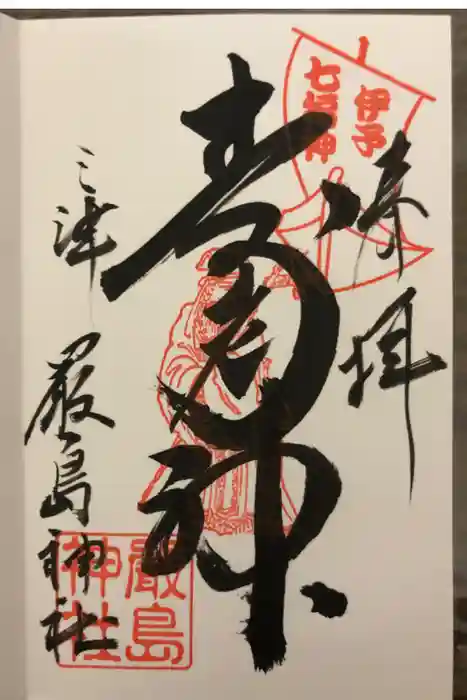 伊予
七福神
奉拝
寿老神
三津
厳島神社
嚴島
神社